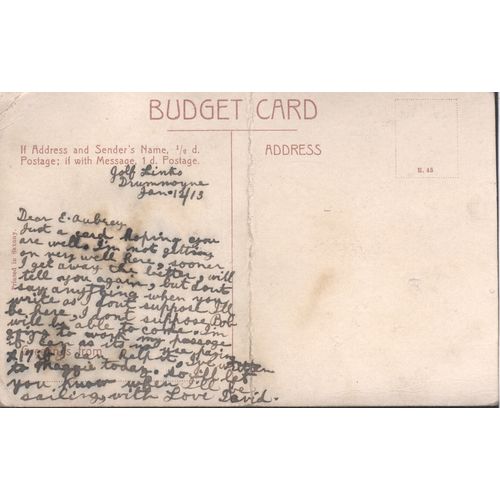 BUDGET CARD
If Address and Sender's Name, ½ d.
Postage; if with Message, 1 d. Postage.
ADDRESS
U. 45
Printed in Saxony.
Golf Links
Drummoyne
Jan. 12/13
Dear E. Aubrey
Just a card hoping you
are well, I'm not getting
on very well here, sooner
I get away the better, will
tell you again, but don't
say anything when you
write as I dont suppose I'll
be here, I dont suppose Bob
will be able to come. I'm
going to work my passage
if I can as it's
Greetings from
half it's paying
to Maggie today. so I'll let
you know when I'll be
sailing, with Love David.